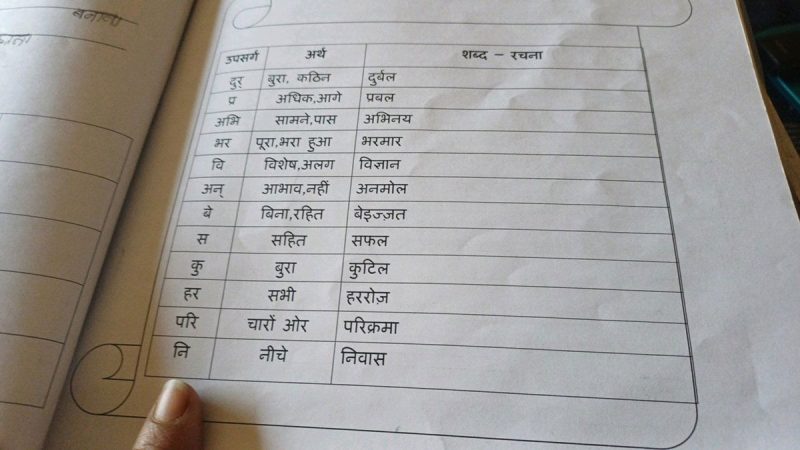 बनाना
उपसर्ग अर्थ शब्द – रचना
दुर् बुरा, कठिन दुर्बल
प्र अधिक,आगे प्रबल
अभि सामने,पास अभिनय
भर पूरा,भरा हुआ भरमार
वि विशेष,अलग विज्ञान
अन् आभाव,नहीं अनमोल
बे बिना,रहित बेइज्ज़त
स सहित सफल
कु बुरा कुटिल
हर सभी हररोज़
परि चारों ओर परिक्रमा
नि नीचे निवास